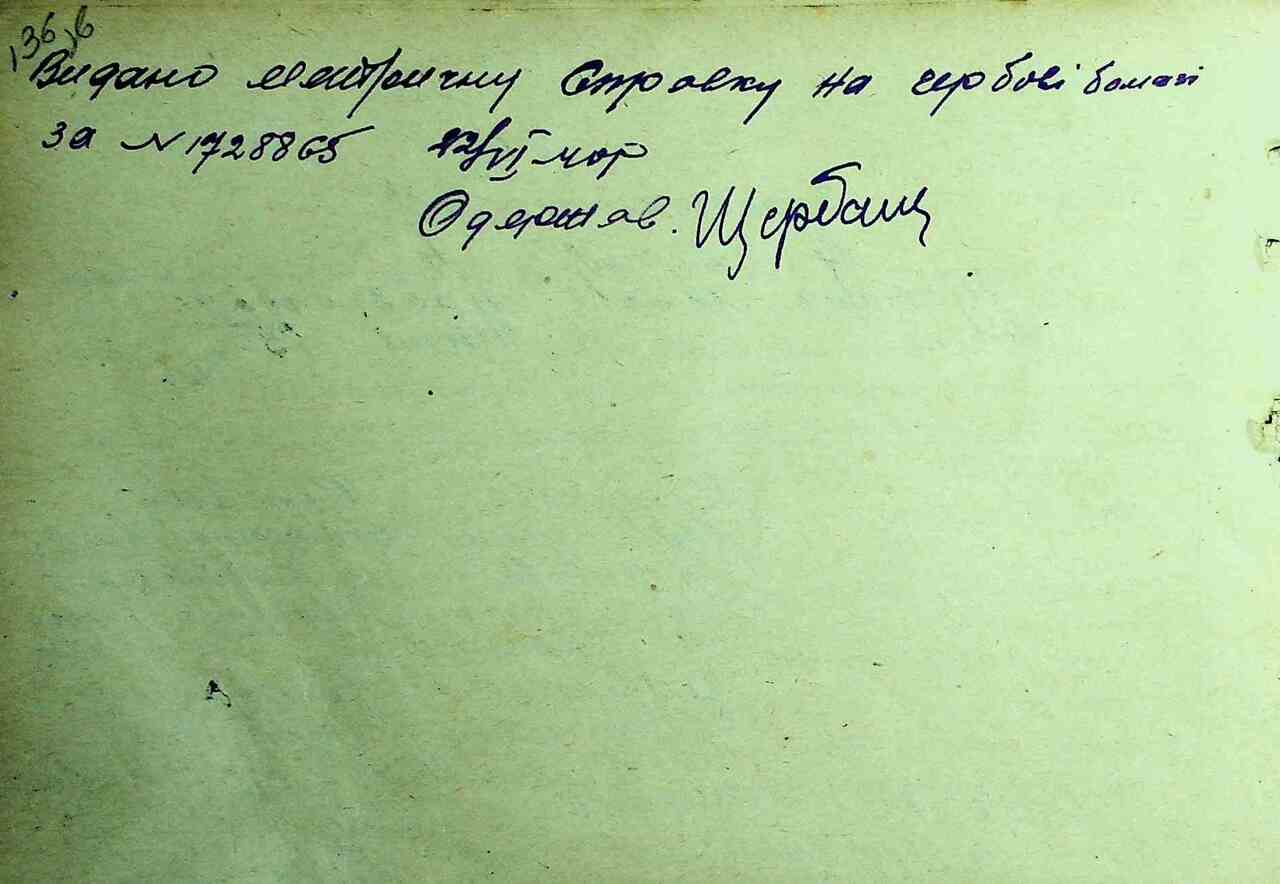 136, в
Видано метричну справку на гербові бомазі
за № 1728865 22/VI
Одержав. Щербань